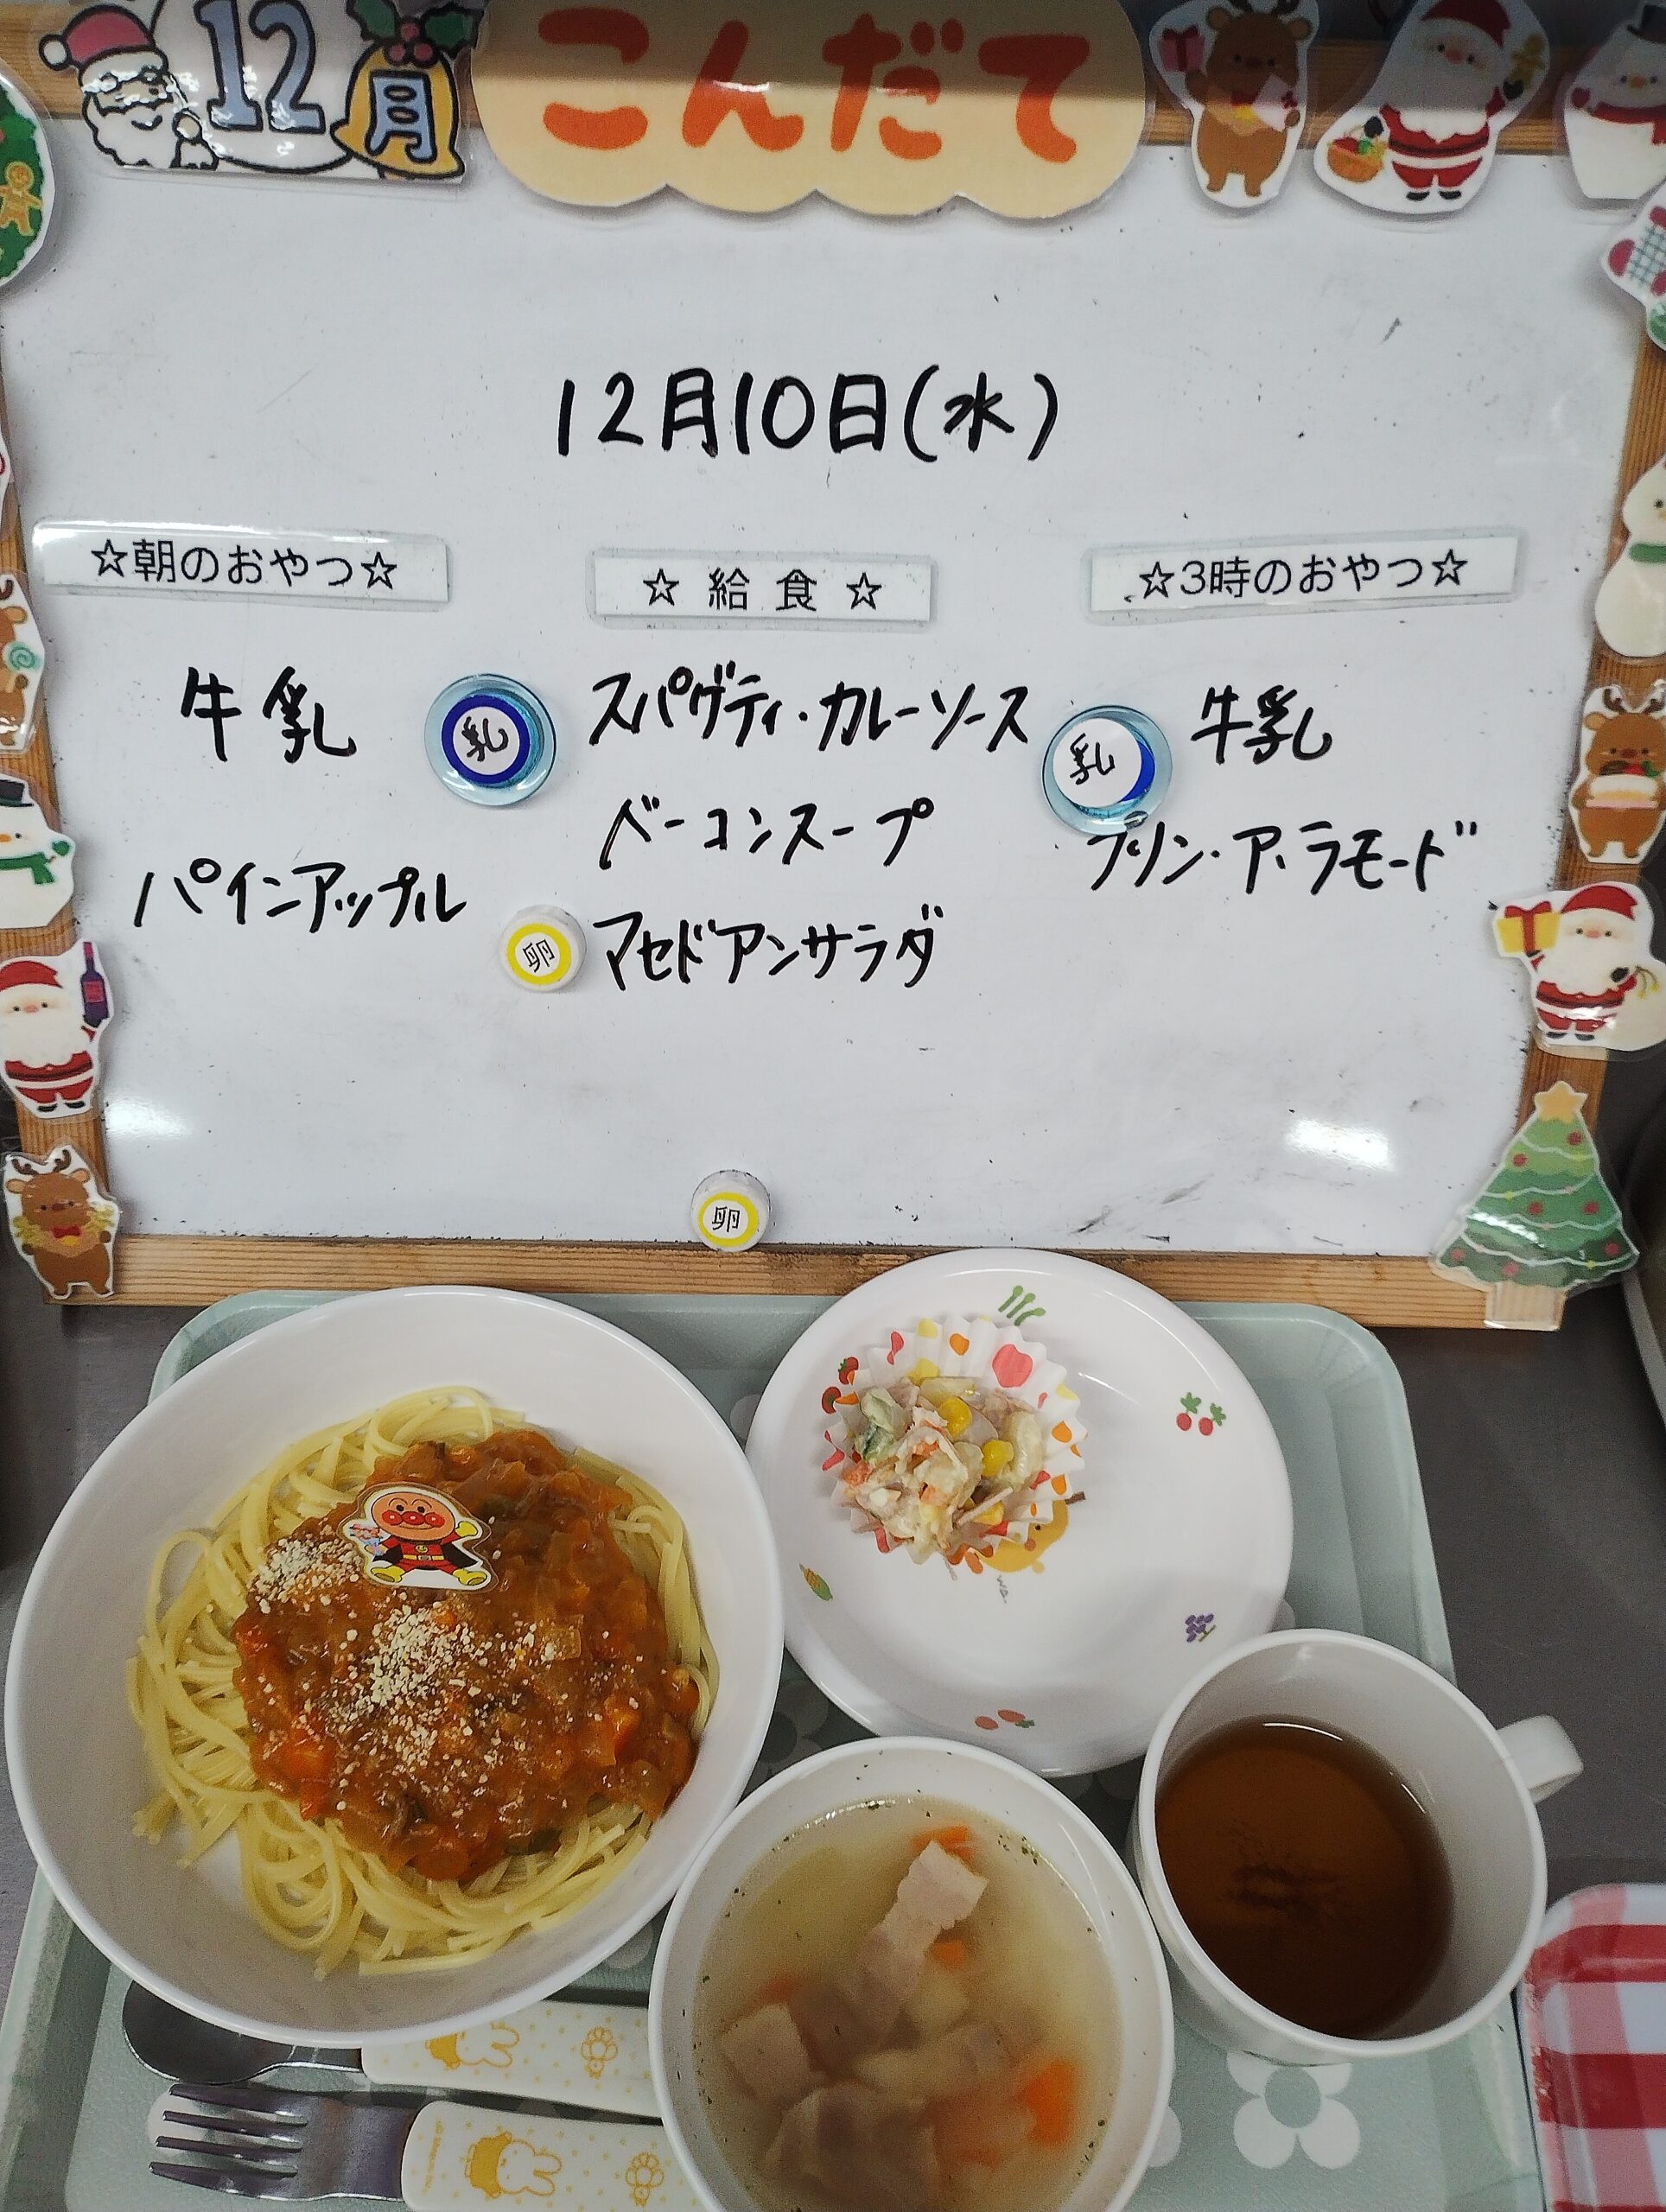 12月
こんだて
12月10日(水)
☆朝のおやつ☆
牛乳
パインアップル
☆ 給 食 ☆
乳 スパゲティ・カレーソース
ベーコンスープ
卵 マセドアンサラダ
☆3時のおやつ☆
乳 牛乳
プリン・ア・ラモード
卵